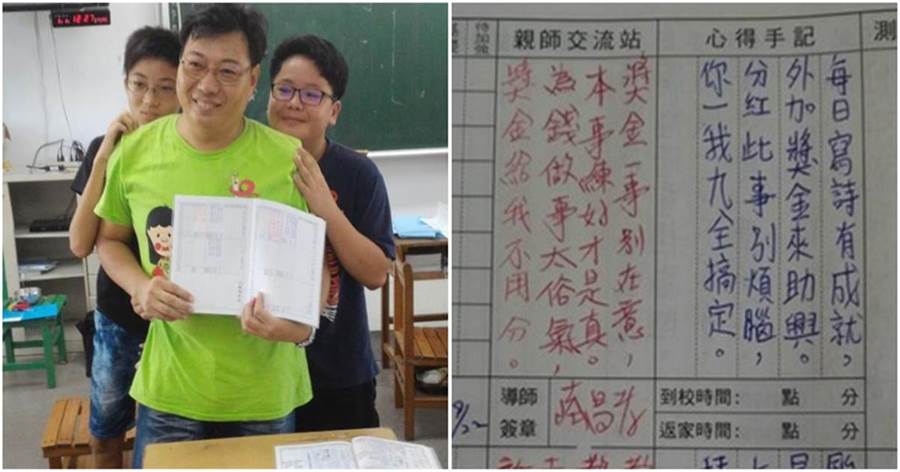 測
心得手記
每日寫詩有成就，
外加獎金來助興。
分紅此事別煩腦，
你一我九全搞定。
親師交流站
獎金一事別在意，
本事練好才是真。
為錢做事太俗氣，
獎金給我不用分。
待加強
到校時間： 點 分
返家時間： 點 分
導師
簽章